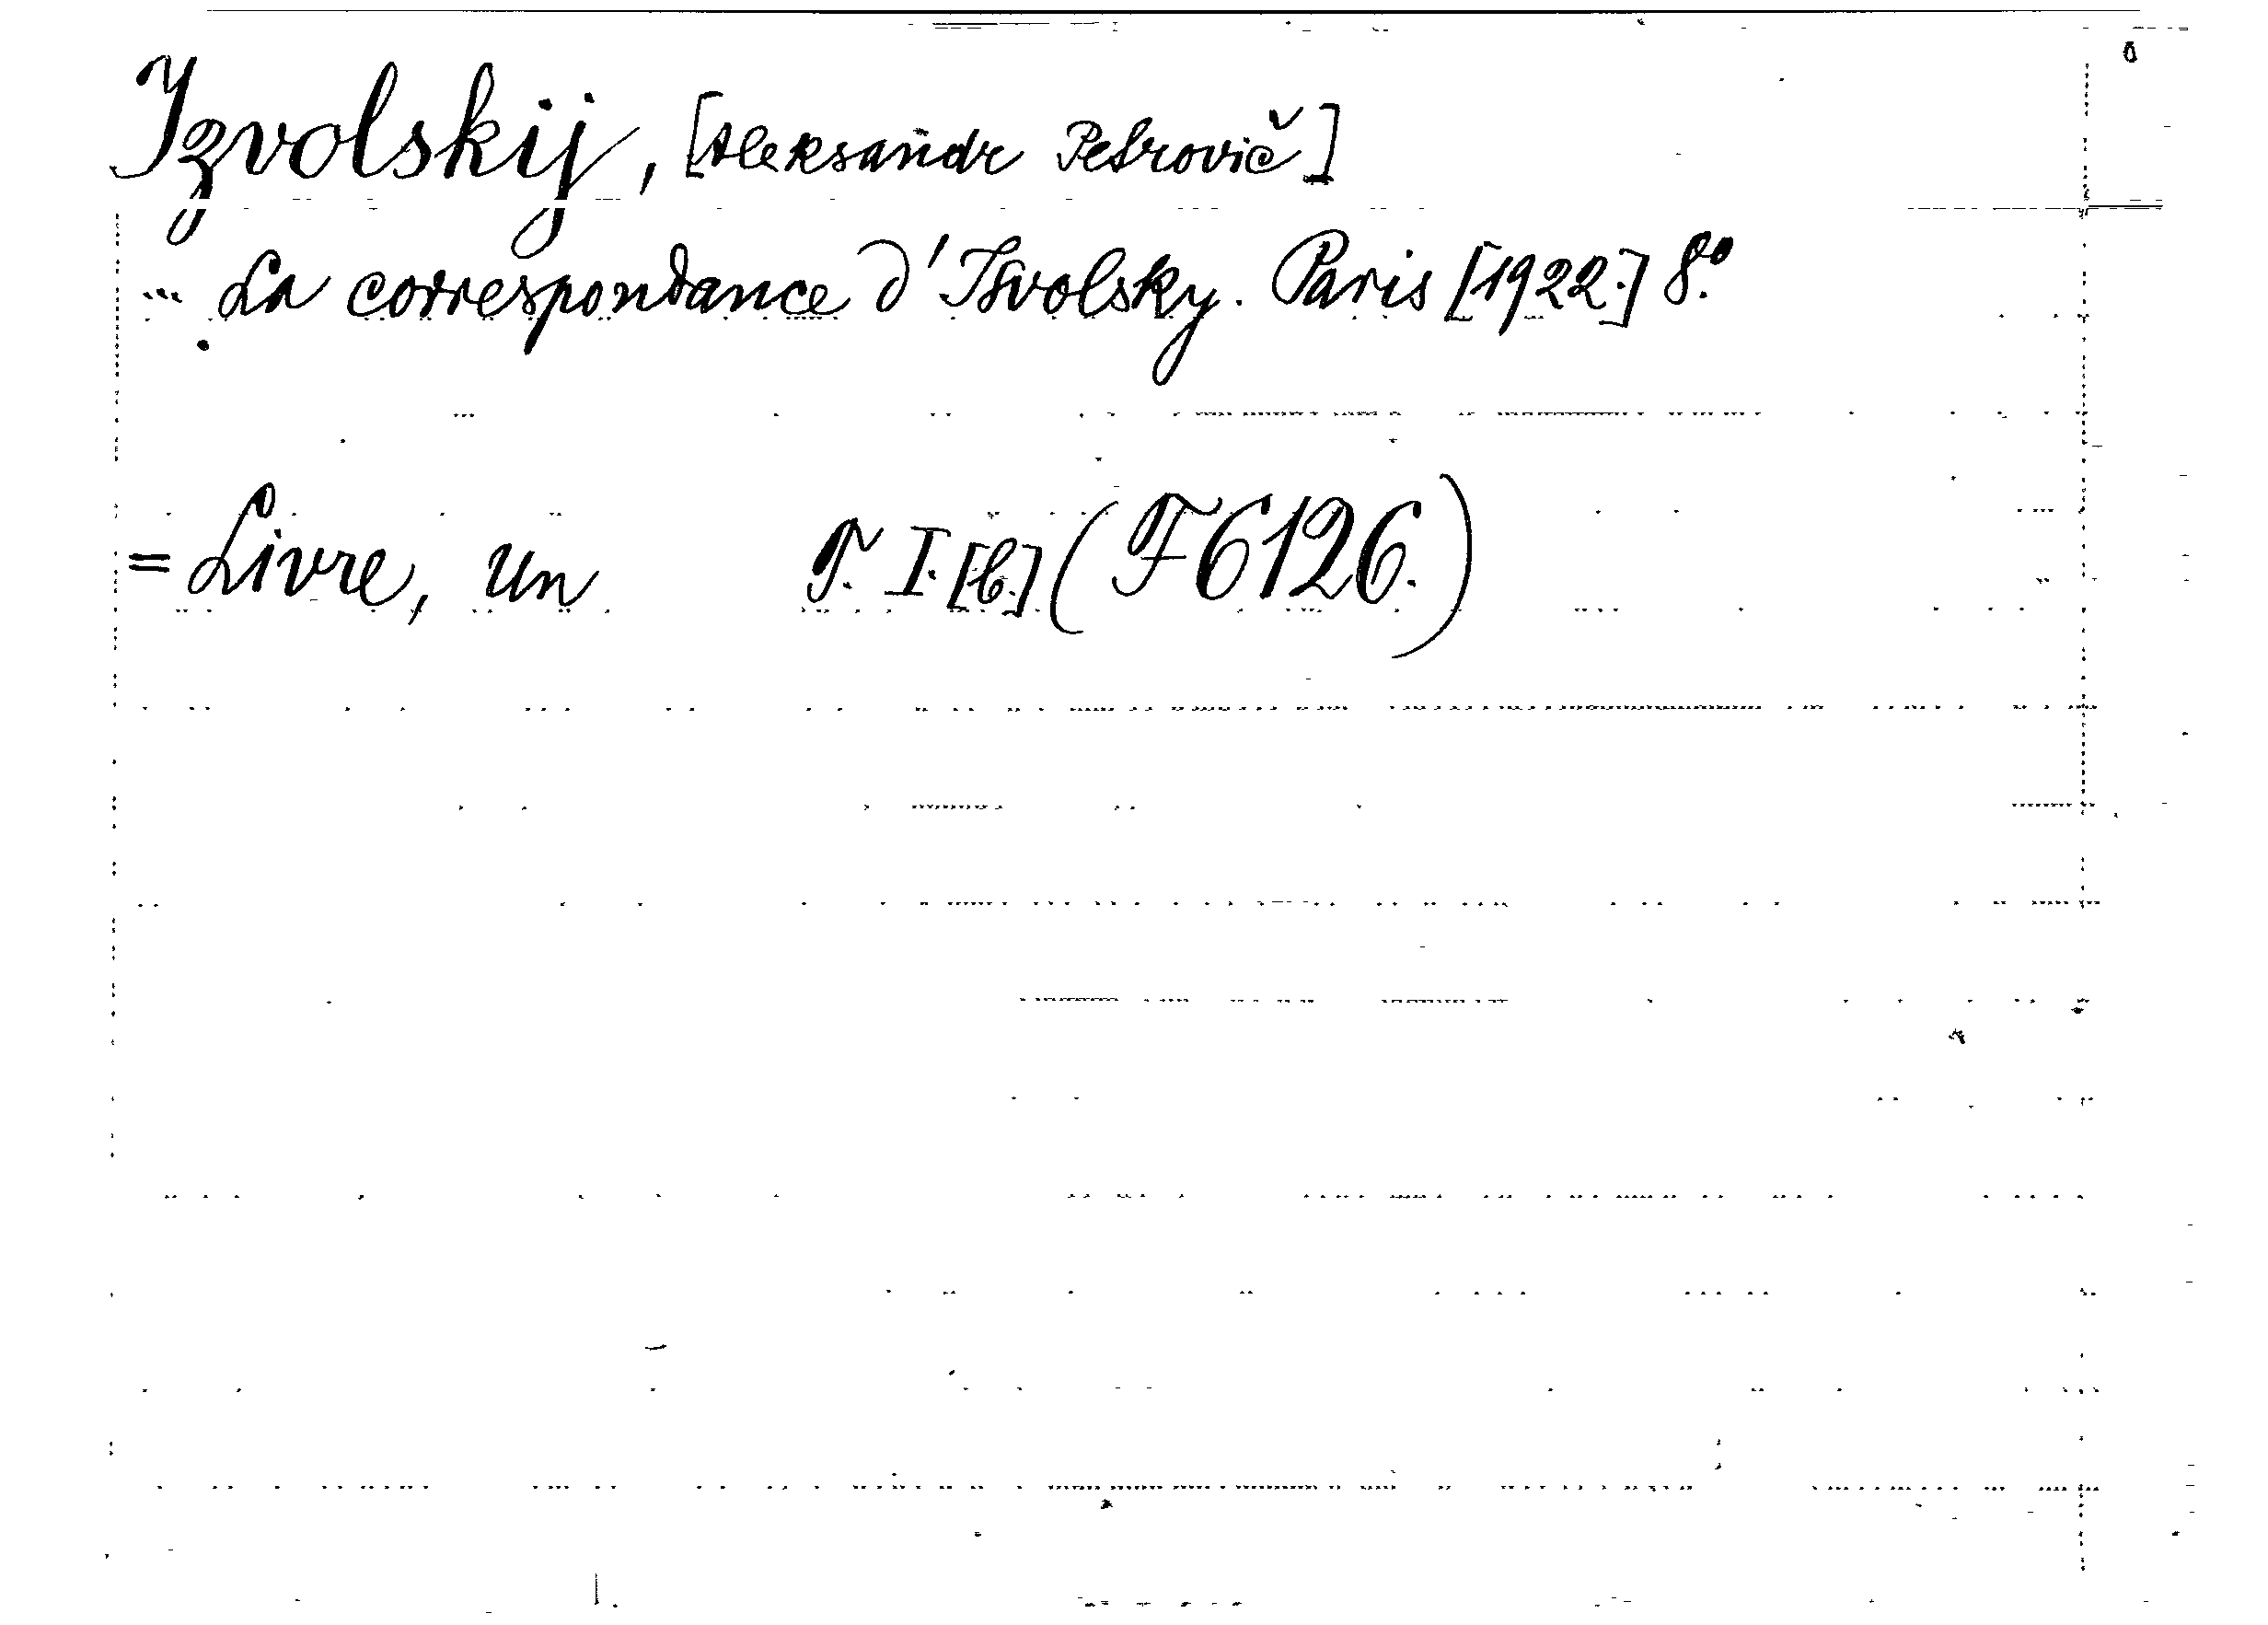 Izvolskij, [Aleksandr Petrovič]
... La correspondance d'Isvolsky. Paris [1922.] 8.º
= Livre, un T. I. [b.] (F6126.)